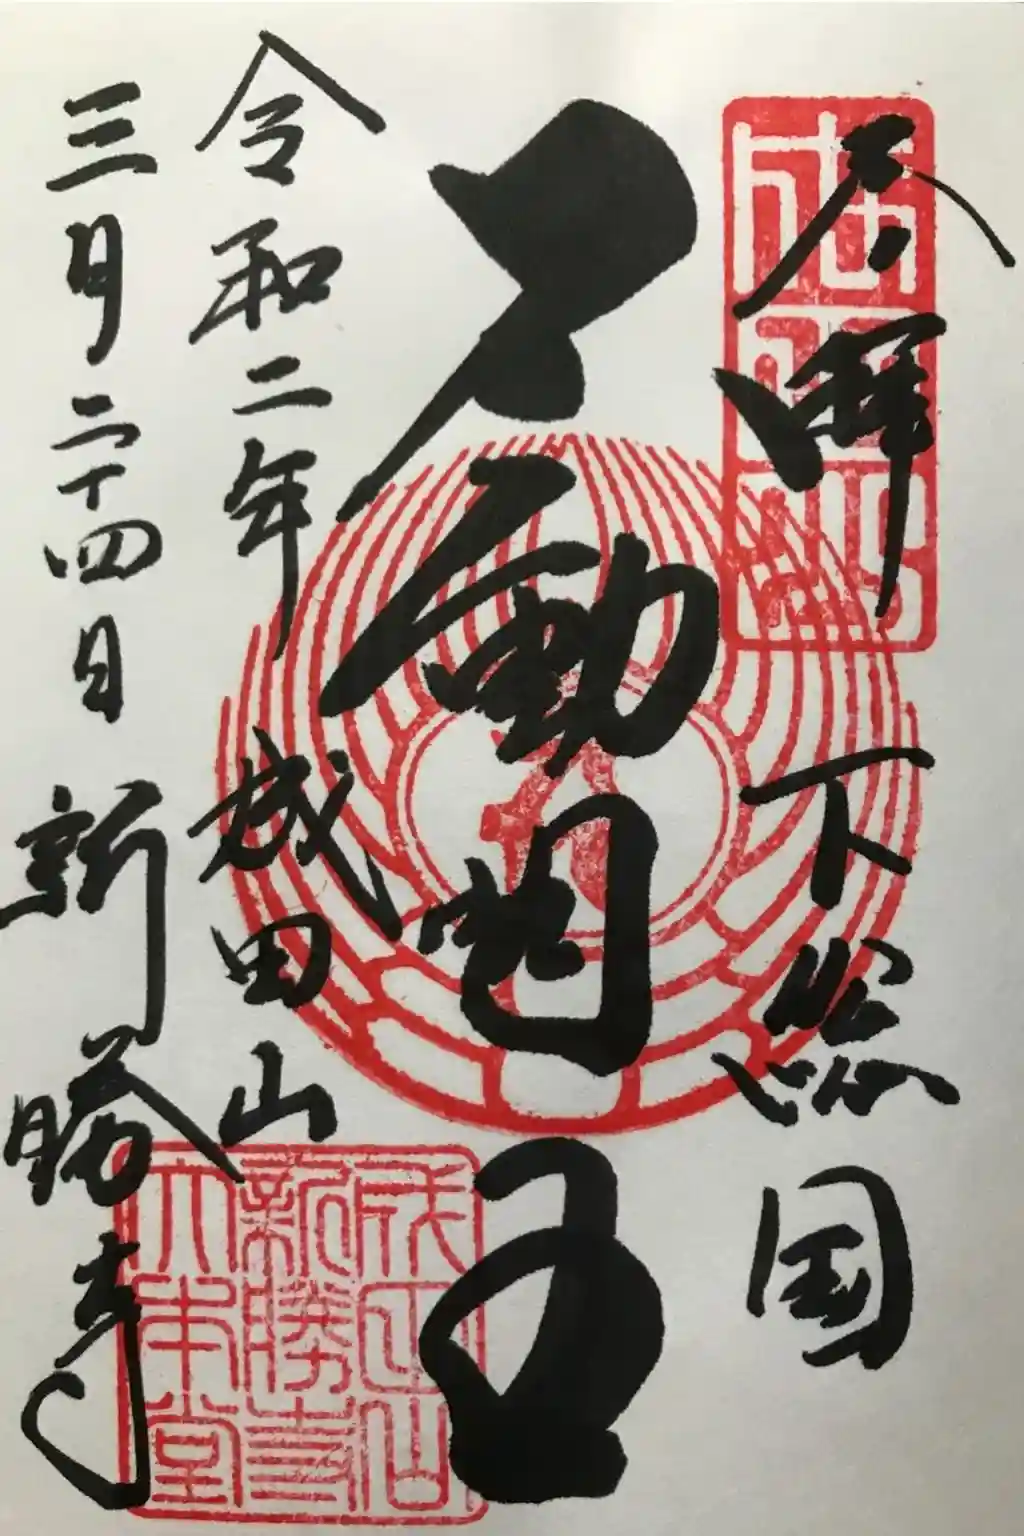 奉拝
下総国
不動明王
令和二年
三月二十四日
成田山
新勝寺
成田山
成田山
新勝寺
大本堂